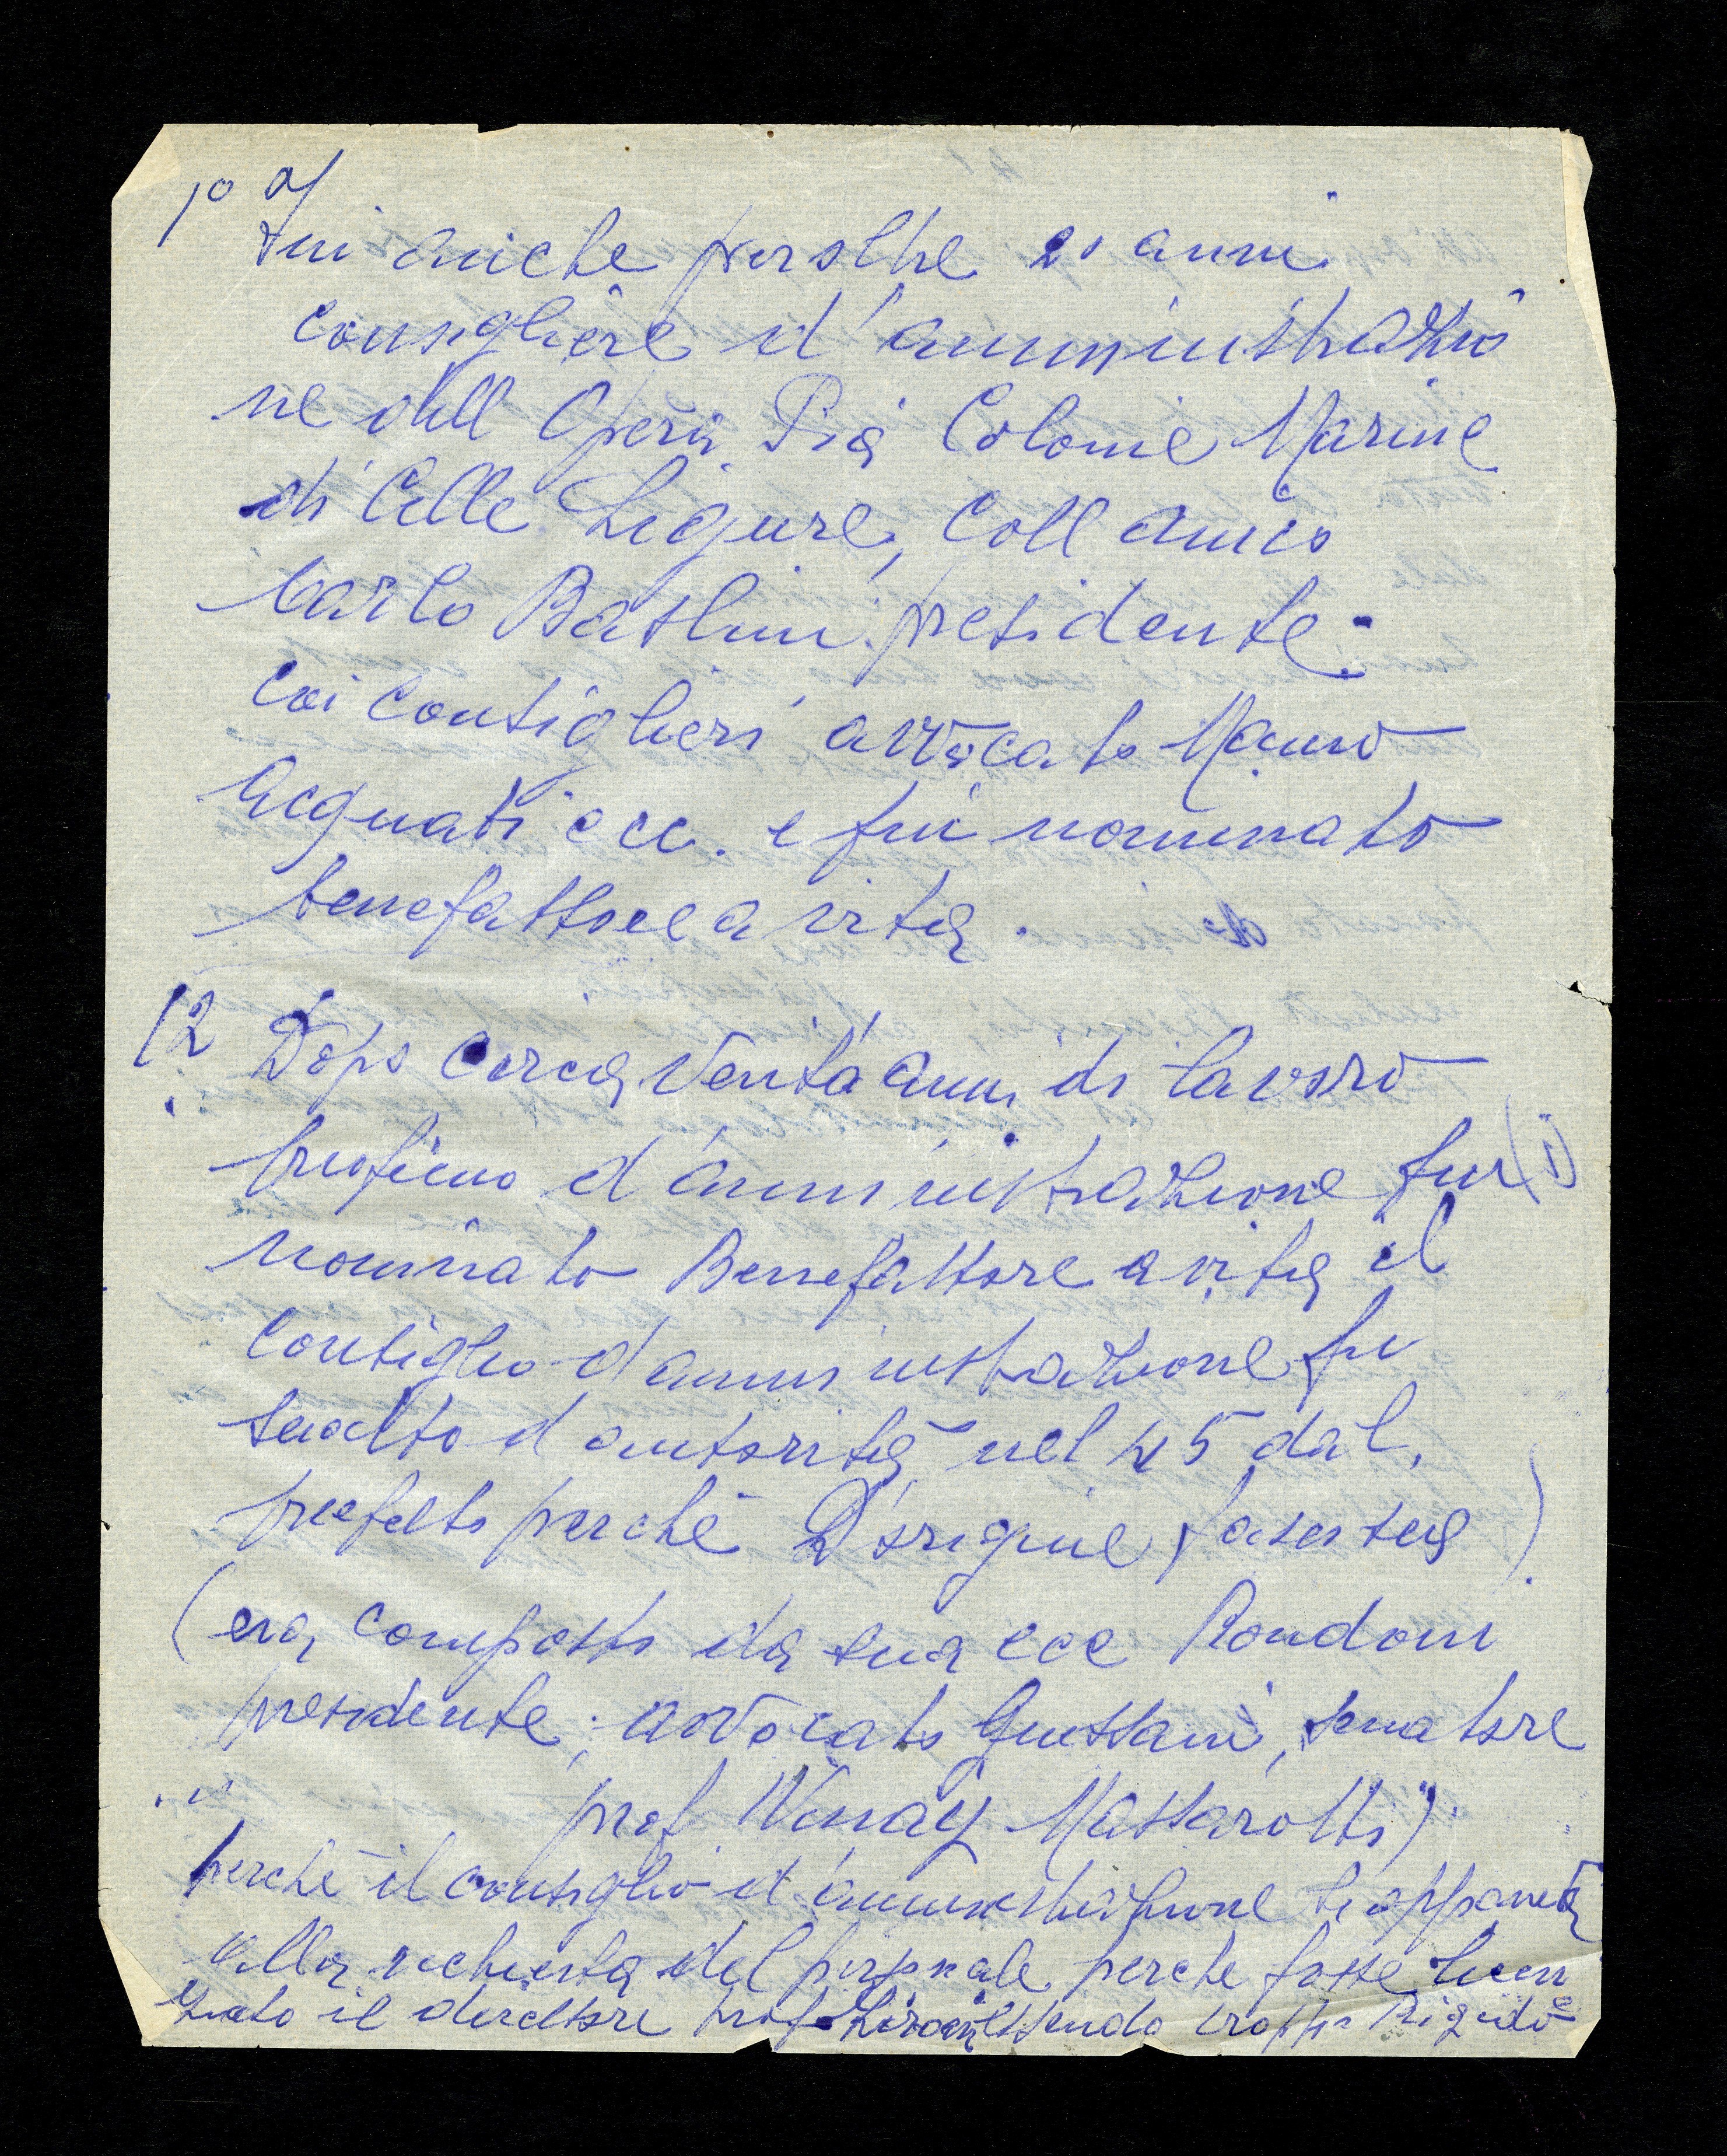 1° a/
Fui anche per oltre 20 anni
consigliere d'amministrazio
ne dell Opera Pia Colonie Marine
di Celle Ligure, coll amico
Carlo Baslini presidente.
coi consiglieri avvocato Mauro
Acquati ecc. e fui nominato
benefattore a vita.
12 Dopo circa Venta anni di lavoro
proficuo d'amministrazione fui (1)
nominato Benefattore a vita il
Consiglio d amministrazione fu
sciolto d autorità nel 45 dal
prefetto perchè D'origine fascista)
(era composto da sua ecc Rondoni
presidente, avvocato Gussani, senatore
prof. Massarotti)
perchè il consiglio d'amministrazione si opponeva
alla richiesta del personale perche fosse licen
ziato il direttore prof essendo troppo Rigido